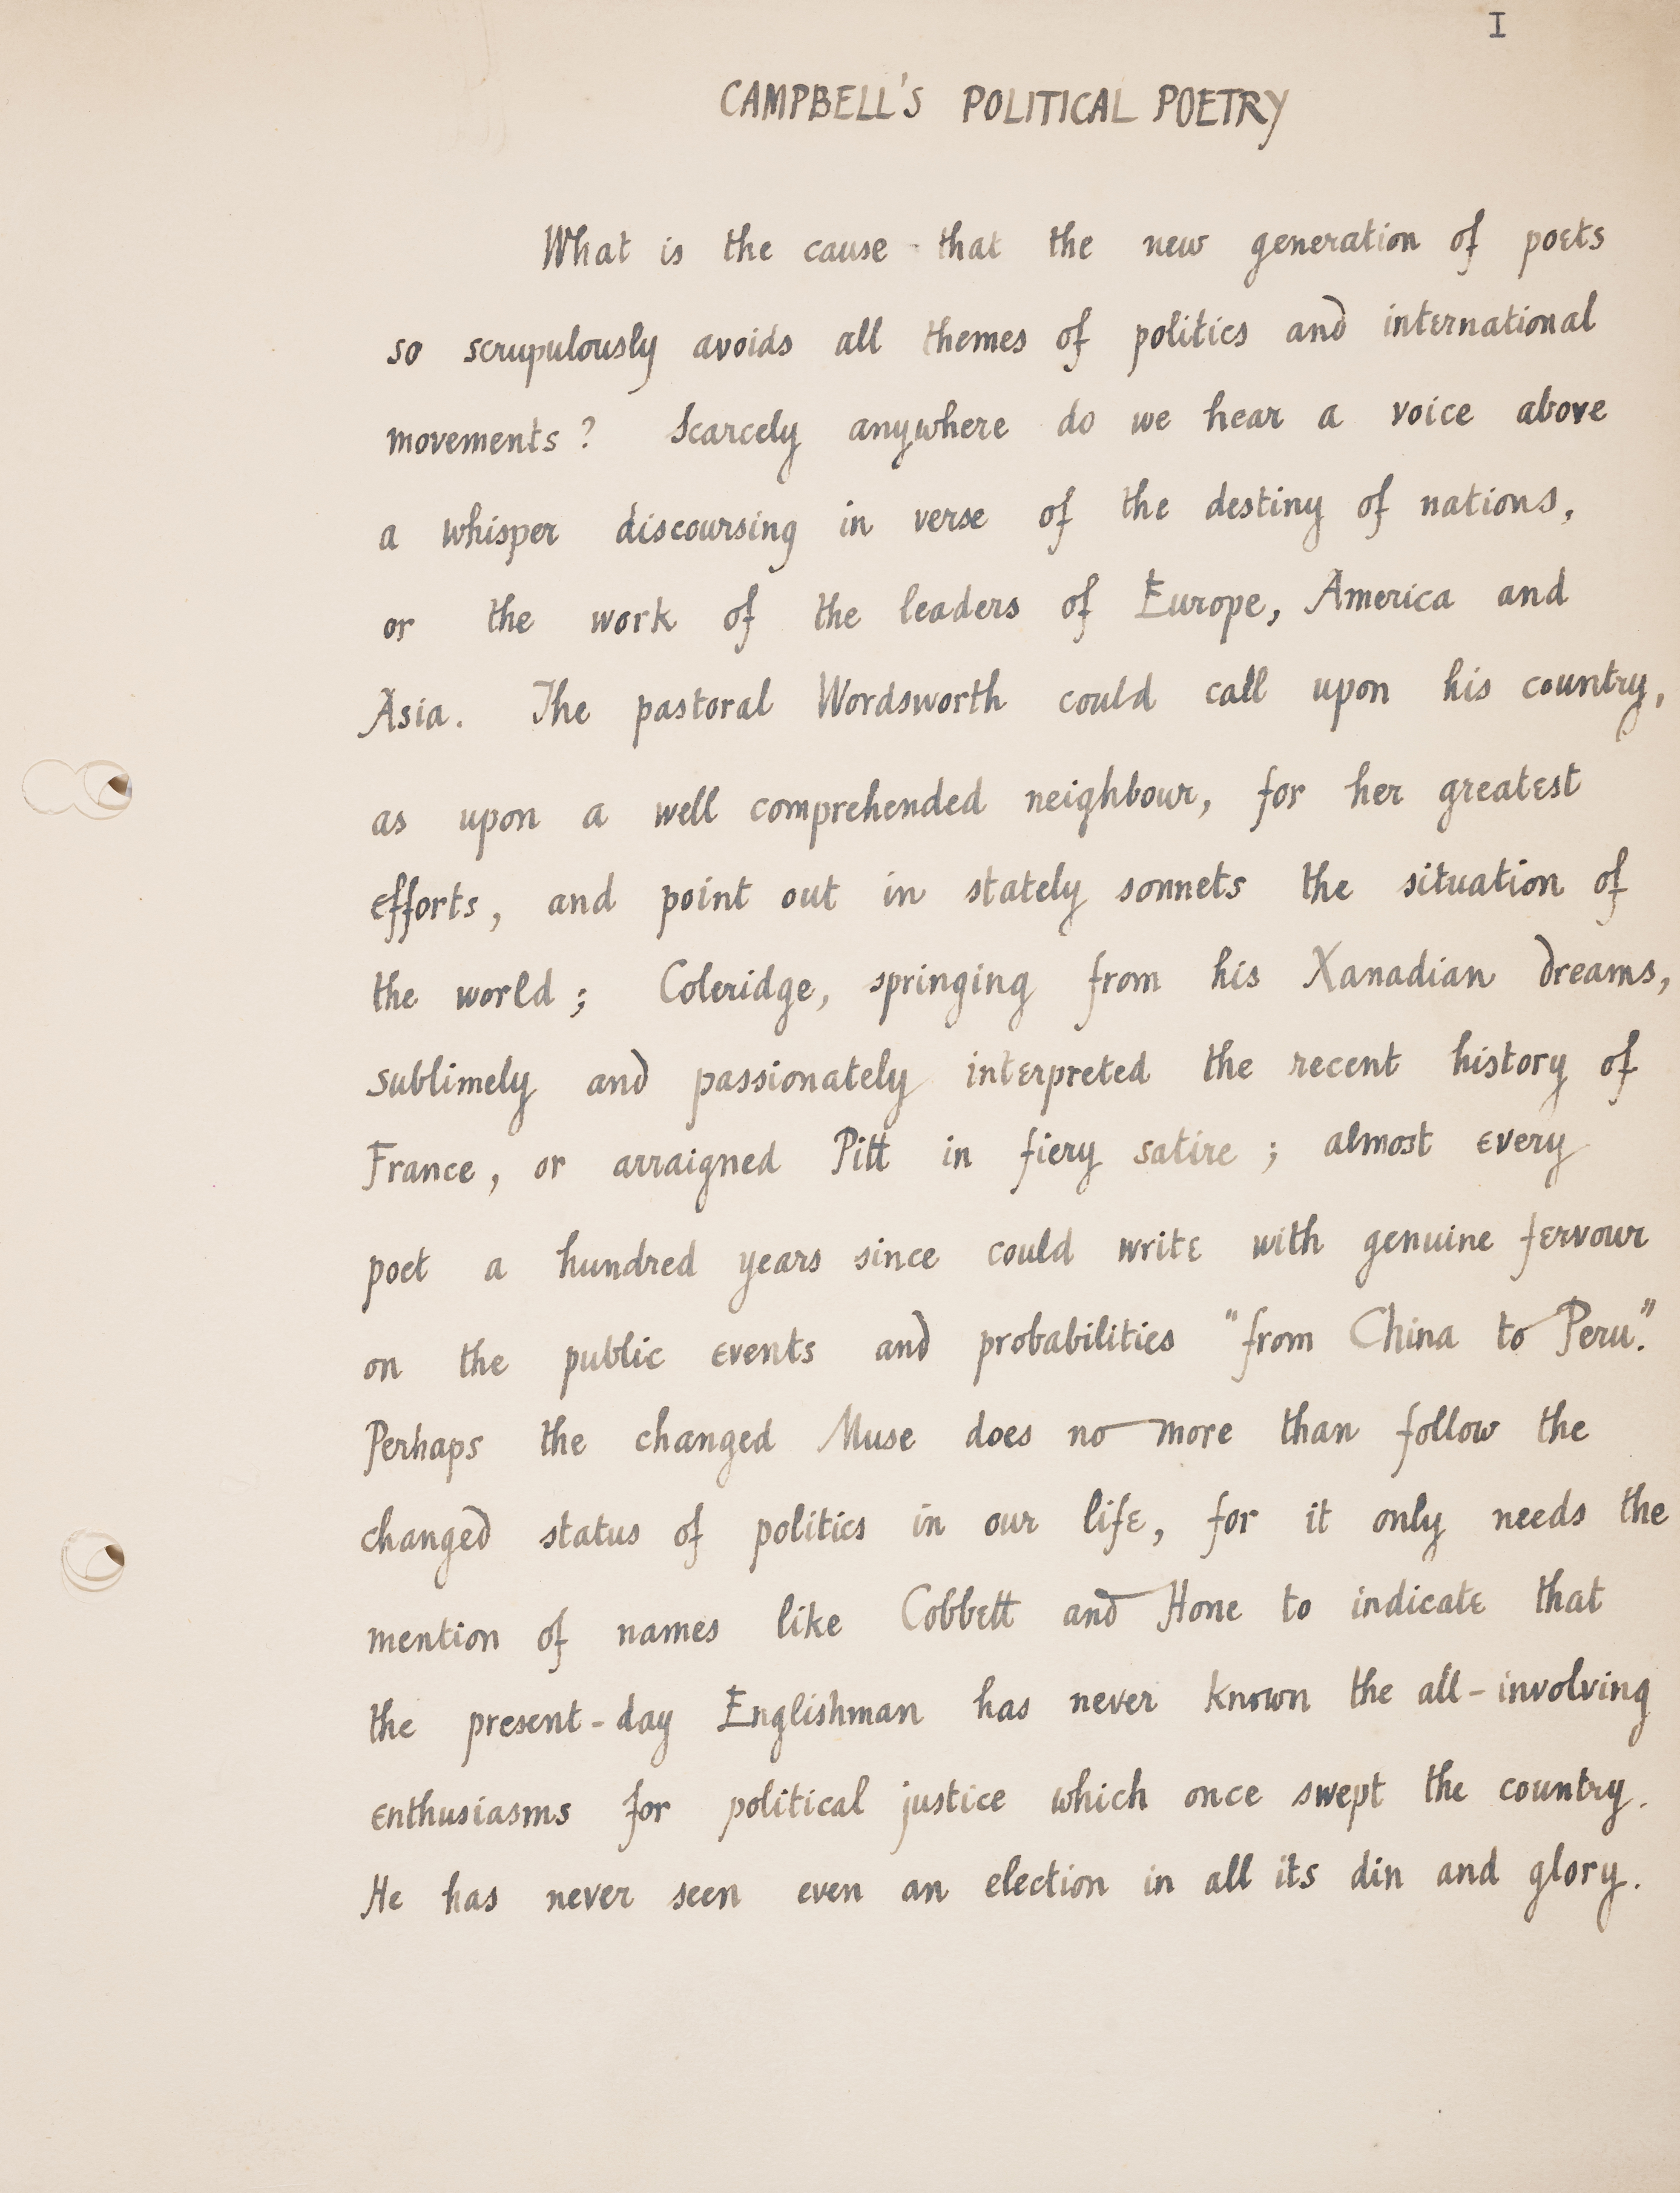 I
CAMPBELL'S POLITICAL POETRY
What is the cause that the new generation of poets
so scrupulously avoids all themes of politics and international
movements? Scarcely anywhere do we hear a voice above
a whisper discoursing in verse of the destiny of nations,
or the work of the leaders of Europe, America and
Asia. The pastoral Wordsworth could call upon his country,
as upon a well comprehended neighbour, for her greatest
efforts, and point out in stately sonnets the situation of
the world; Coleridge, springing from his Xanadian dreams,
sublimely and passionately interpreted the recent history of
France, or arraigned Pitt in fiery satire; almost every
poet a hundred years since could write with genuine fervour
on the public events and probabilities "from China to Peru".
Perhaps the changed Muse does no more than follow the
changed status of politics in our life, for it only needs the
mention of names like Cobbett and Hone to indicate that
the present-day Englishman has never known the all-involving
enthusiasms for political justice which once swept the country.
He has never seen even an election in all its din and glory.